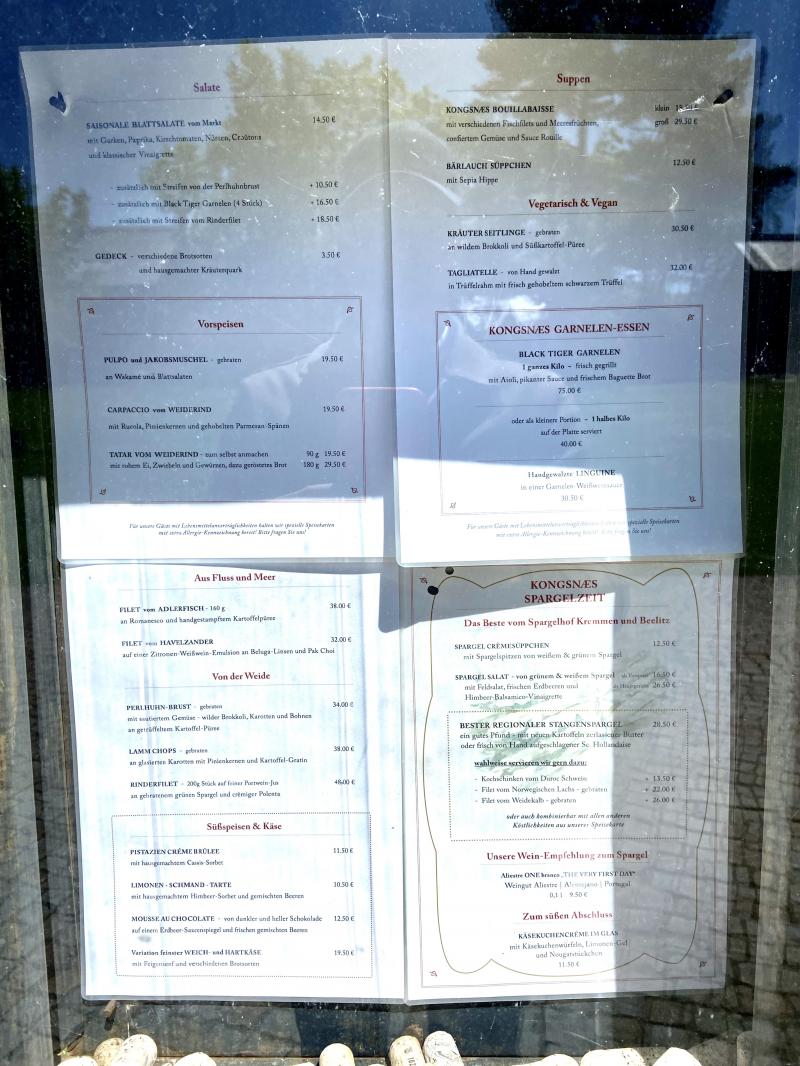 Salate
SAISONALE BLATTSALATE vom Markt 14.50 €
mit Gurken, Paprika, Kirschtomaten, Nüssen, Croûtons
und klassischer Vinaigrette
- zusätzlich mit Streifen von der Perlhuhnbrust + 10.50 €
- zusätzlich mit Black Tiger Garnelen (4 Stück) + 16.50 €
- zusätzlich mit Streifen vom Rinderfilet + 18.50 €
GEDECK - verschiedene Brotsorten 3.50 €
und hausgemachter Kräuterquark
Vorspeisen
PULPO und JAKOBSMUSCHEL - gebraten 19.50 €
an Wakamé und Blattsalaten
CARPACCIO vom WEIDERIND 19.50 €
mit Rucola, Pinienkernen und gehobelten Parmesan-Spänen
TATAR VOM WEIDERIND - zum selbst anmachen 90 g 19.50 €
mit rohem Ei, Zwiebeln und Gewürzen, dazu geröstetes Brot 180 g 29.50 €
Für unsere Gäste mit Lebensmittelunverträglichkeiten halten wir spezielle Speisekarten
mit extra Allergie-Kennzeichnung bereit! Bitte fragen Sie uns!
Suppen
KONGSNÆS BOUILLABAISSE klein
mit verschiedenen Fischfilets und Meeresfrüchten, groß 29.50 €
confiertem Gemüse und Sauce Rouille
BÄRLAUCH SÜPPCHEN 12.50 €
mit Sepia Hippe
Vegetarisch & Vegan
KRÄUTER SEITLINGE - gebraten 30.50 €
an wildem Brokkoli und Süßkartoffel-Püree
TAGLIATELLE - von Hand gewalzt 32.00 €
in Trüffelrahm mit frisch gehobeltem schwarzem Trüffel
KONGSNÆS GARNELEN-ESSEN
BLACK TIGER GARNELEN
1 ganzes Kilo - frisch gegrillt
mit Aioli, pikanter Sauce und frischem Baguette Brot
75.00 €
oder als kleinere Portion - 1 halbes Kilo
auf der Platte serviert
40.00 €
Handgewalzte LINGUINE
in einer Garnelen-Weißweinsauce
30.50 €
Für unsere Gäste mit Lebensmittelunverträglichkeiten halten wir spezielle Speisekarten
mit extra Allergie-Kennzeichnung bereit! Bitte fragen Sie uns!
Aus Fluss und Meer
FILET vom ADLERFISCH - 160 g 38.00 €
an Romanesco und handgestampftem Kartoffelpüree
FILET vom HAVELZANDER 32.00 €
auf einer Zitronen-Weißwein-Emulsion an Beluga-Linsen und Pak Choi
Von der Weide
PERLHUHN-BRUST - gebraten 34.00 €
mit sautiertem Gemüse - wilder Brokkoli, Karotten und Bohnen
an getrüffeltem Kartoffel-Püree
LAMM CHOPS - gebraten 38.00 €
an glasierten Karotten mit Pinienkernen und Kartoffel-Gratin
RINDERFILET - 200g Stück auf feiner Portwein-Jus 48.00 €
an gebratenem grünen Spargel und crèmiger Polenta
Süßspeisen & Käse
PISTAZIEN CRÈME BRÛLÉE 11.50 €
mit hausgemachtem Cassis-Sorbet
LIMONEN - SCHMAND - TARTE 10.50 €
mit hausgemachtem Himbeer-Sorbet und gemischten Beeren
MOUSSE AU CHOCOLATE - von dunkler und heller Schokolade 12.50 €
auf einem Erdbeer-Saucenspiegel und frischen gemischten Beeren
Variation feinster WEICH- und HARTKÄSE 19.50 €
mit Feigensenf und verschiedenen Brotsorten
KONGSNÆS
SPARGELZEIT
Das Beste vom Spargelhof Kremmen und Beelitz
SPARGEL CRÈMESÜPPCHEN 12.50 €
mit Spargelspitzen von weißem & grünem Spargel
SPARGEL SALAT - von grünem & weißem Spargel als Vorspeise 16.50 €
mit Feldsalat, frischen Erdbeeren und als Hauptspeise 26.50 €
Himbeer-Balsamico-Vinaigrette
BESTER REGIONALER STANGENSPARGEL 28.50 €
ein gutes Pfund - mit neuen Kartoffeln zerlassener Butter
oder frisch von Hand aufgeschlagener Sc. Hollandaise
wahlweise servieren wir gern dazu:
- Kochschinken vom Duroc Schwein + 13.50 €
- Filet vom Norwegischen Lachs - gebraten + 22.00 €
- Filet vom Weidekalb - gebraten + 26.00 €
oder auch kombinierbar mit allen anderen
Köstlichkeiten aus unserer Speisekarte
Unsere Wein-Empfehlung zum Spargel
Aliestre ONE branco „THE VERY FIRST DAY"
Weingut Aliestre | Alentejano | Portugal
0,1 l 9.50 €
Zum süßen Abschluss
KÄSEKUCHENCRÈME IM GLAS
mit Käsekuchenwürfeln, Limonen-Gel
und Nougatstückchen
11.50 €